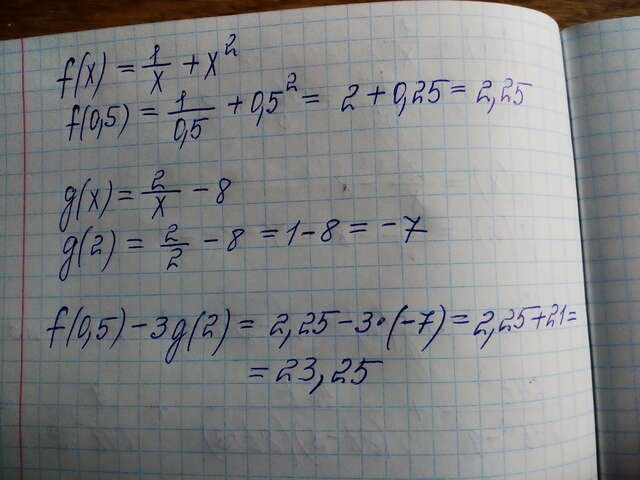 f(x) = 1/x + x²
f(0,5) = 1/0,5 + 0,5² = 2 + 0,25 = 2,25
g(x) = 2/x - 8
g(2) = 2/2 - 8 = 1 - 8 = -7
f(0,5) - 3g(2) = 2,25 - 3·(-7) = 2,25 + 21 =
= 23,25